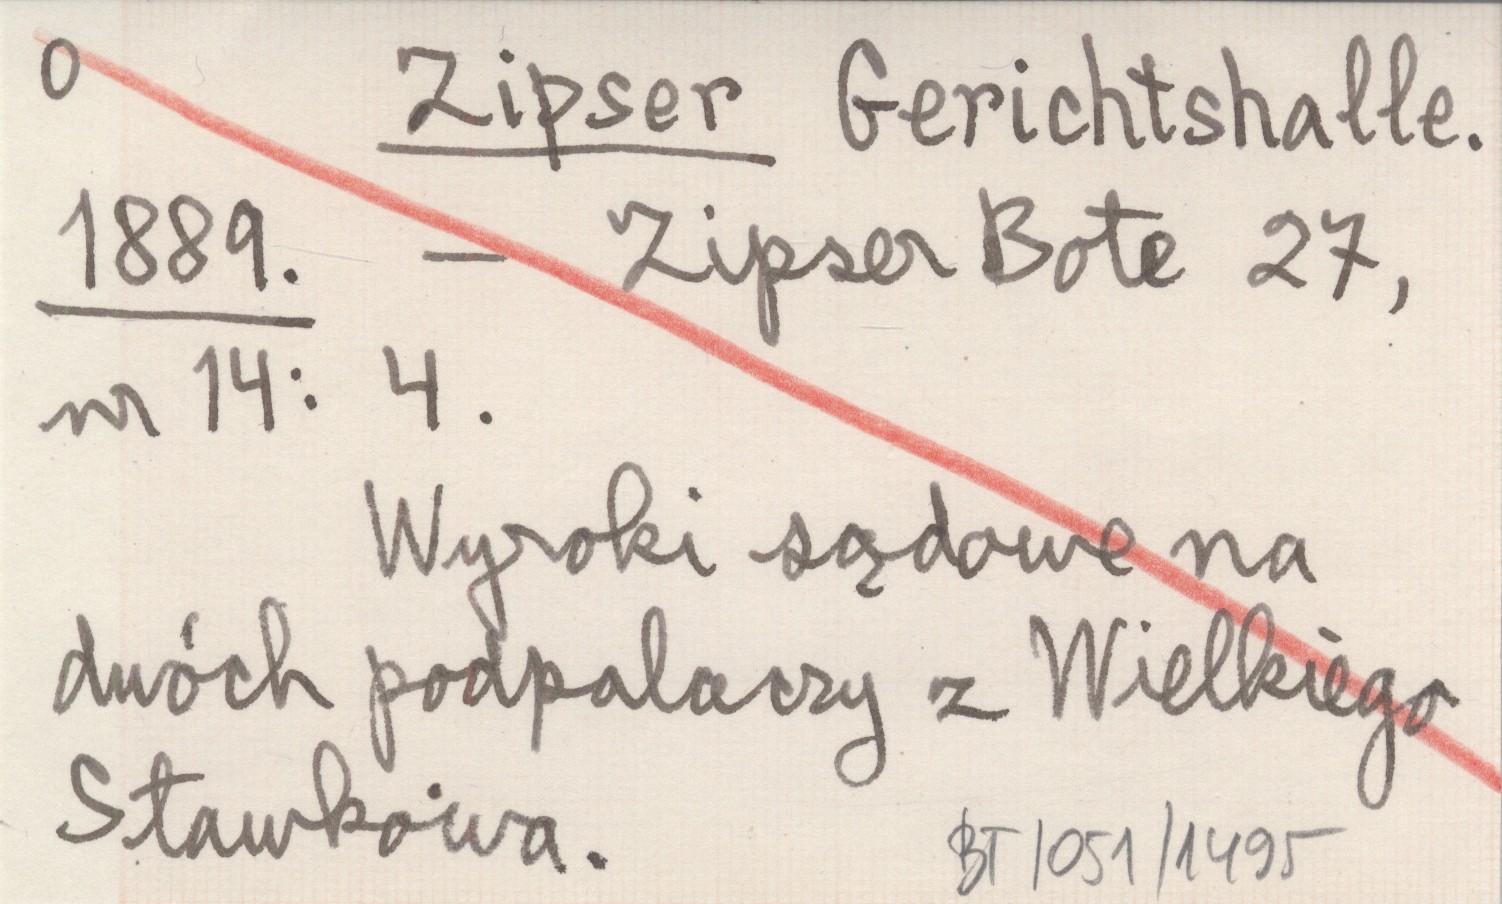 0 Zipser Gerichtshalle.
1889. — Zipser Bote 27,
nr 14: 4.
Wyroki sądowe na
dwóch podpalaczy z Wielkiego
Stawkowa.
BT/051/1495